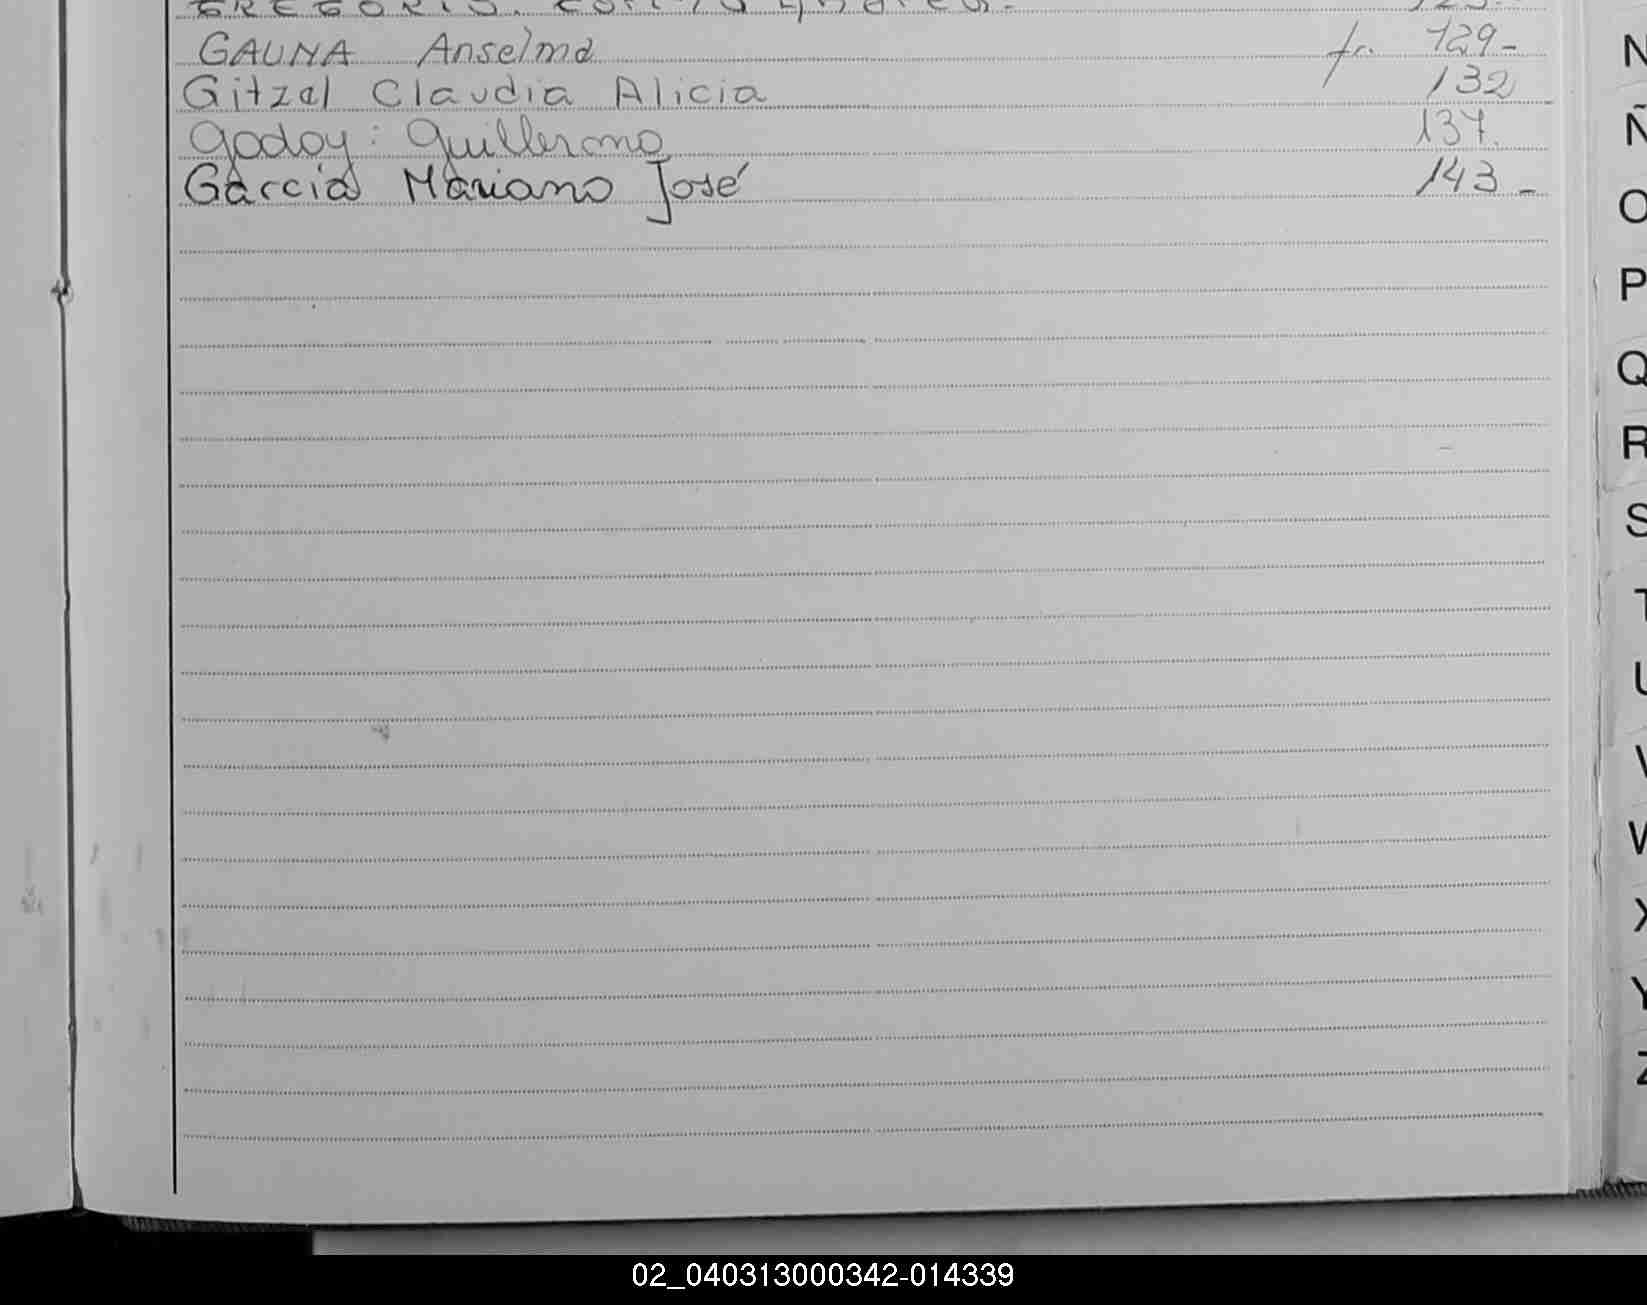 GAUNA Anselma fo. 129-
Gitzel Claudia Alicia 132
Godoy: Guillermo 137.
García Mariano José 143-
N
Ñ
O
P
Q
R
S
T
U
V
W
X
Y
Z
02_040313000342-014339